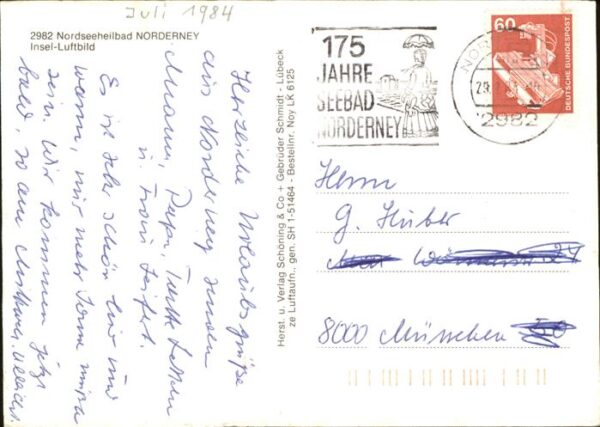 Juli 1984
2982 Nordseeheilbad NORDERNEY
Insel-Luftbild
Herzliche Urlaubsgrüße
aus Norderney senden
Mama, Papa, Tante
u. Frau Seifert.
Es ist sehr schön hier und
warm, nur mehr Sonne müßte
sein. Wir kommen jetzt
bald, so am Mittwoch,
Herst. u. Verlag Schöning & Co + Gebrüder Schmidt - Lübeck
ze Luftaufn., gen. SH 1-51464 - Bestellnr. Noy LK 6125
175
JAHRE
SEEBAD
NORDERNEY
NOR
2982
60
DEUTSCHE BUNDESPOST
Herrn
G. Huber
8000 München